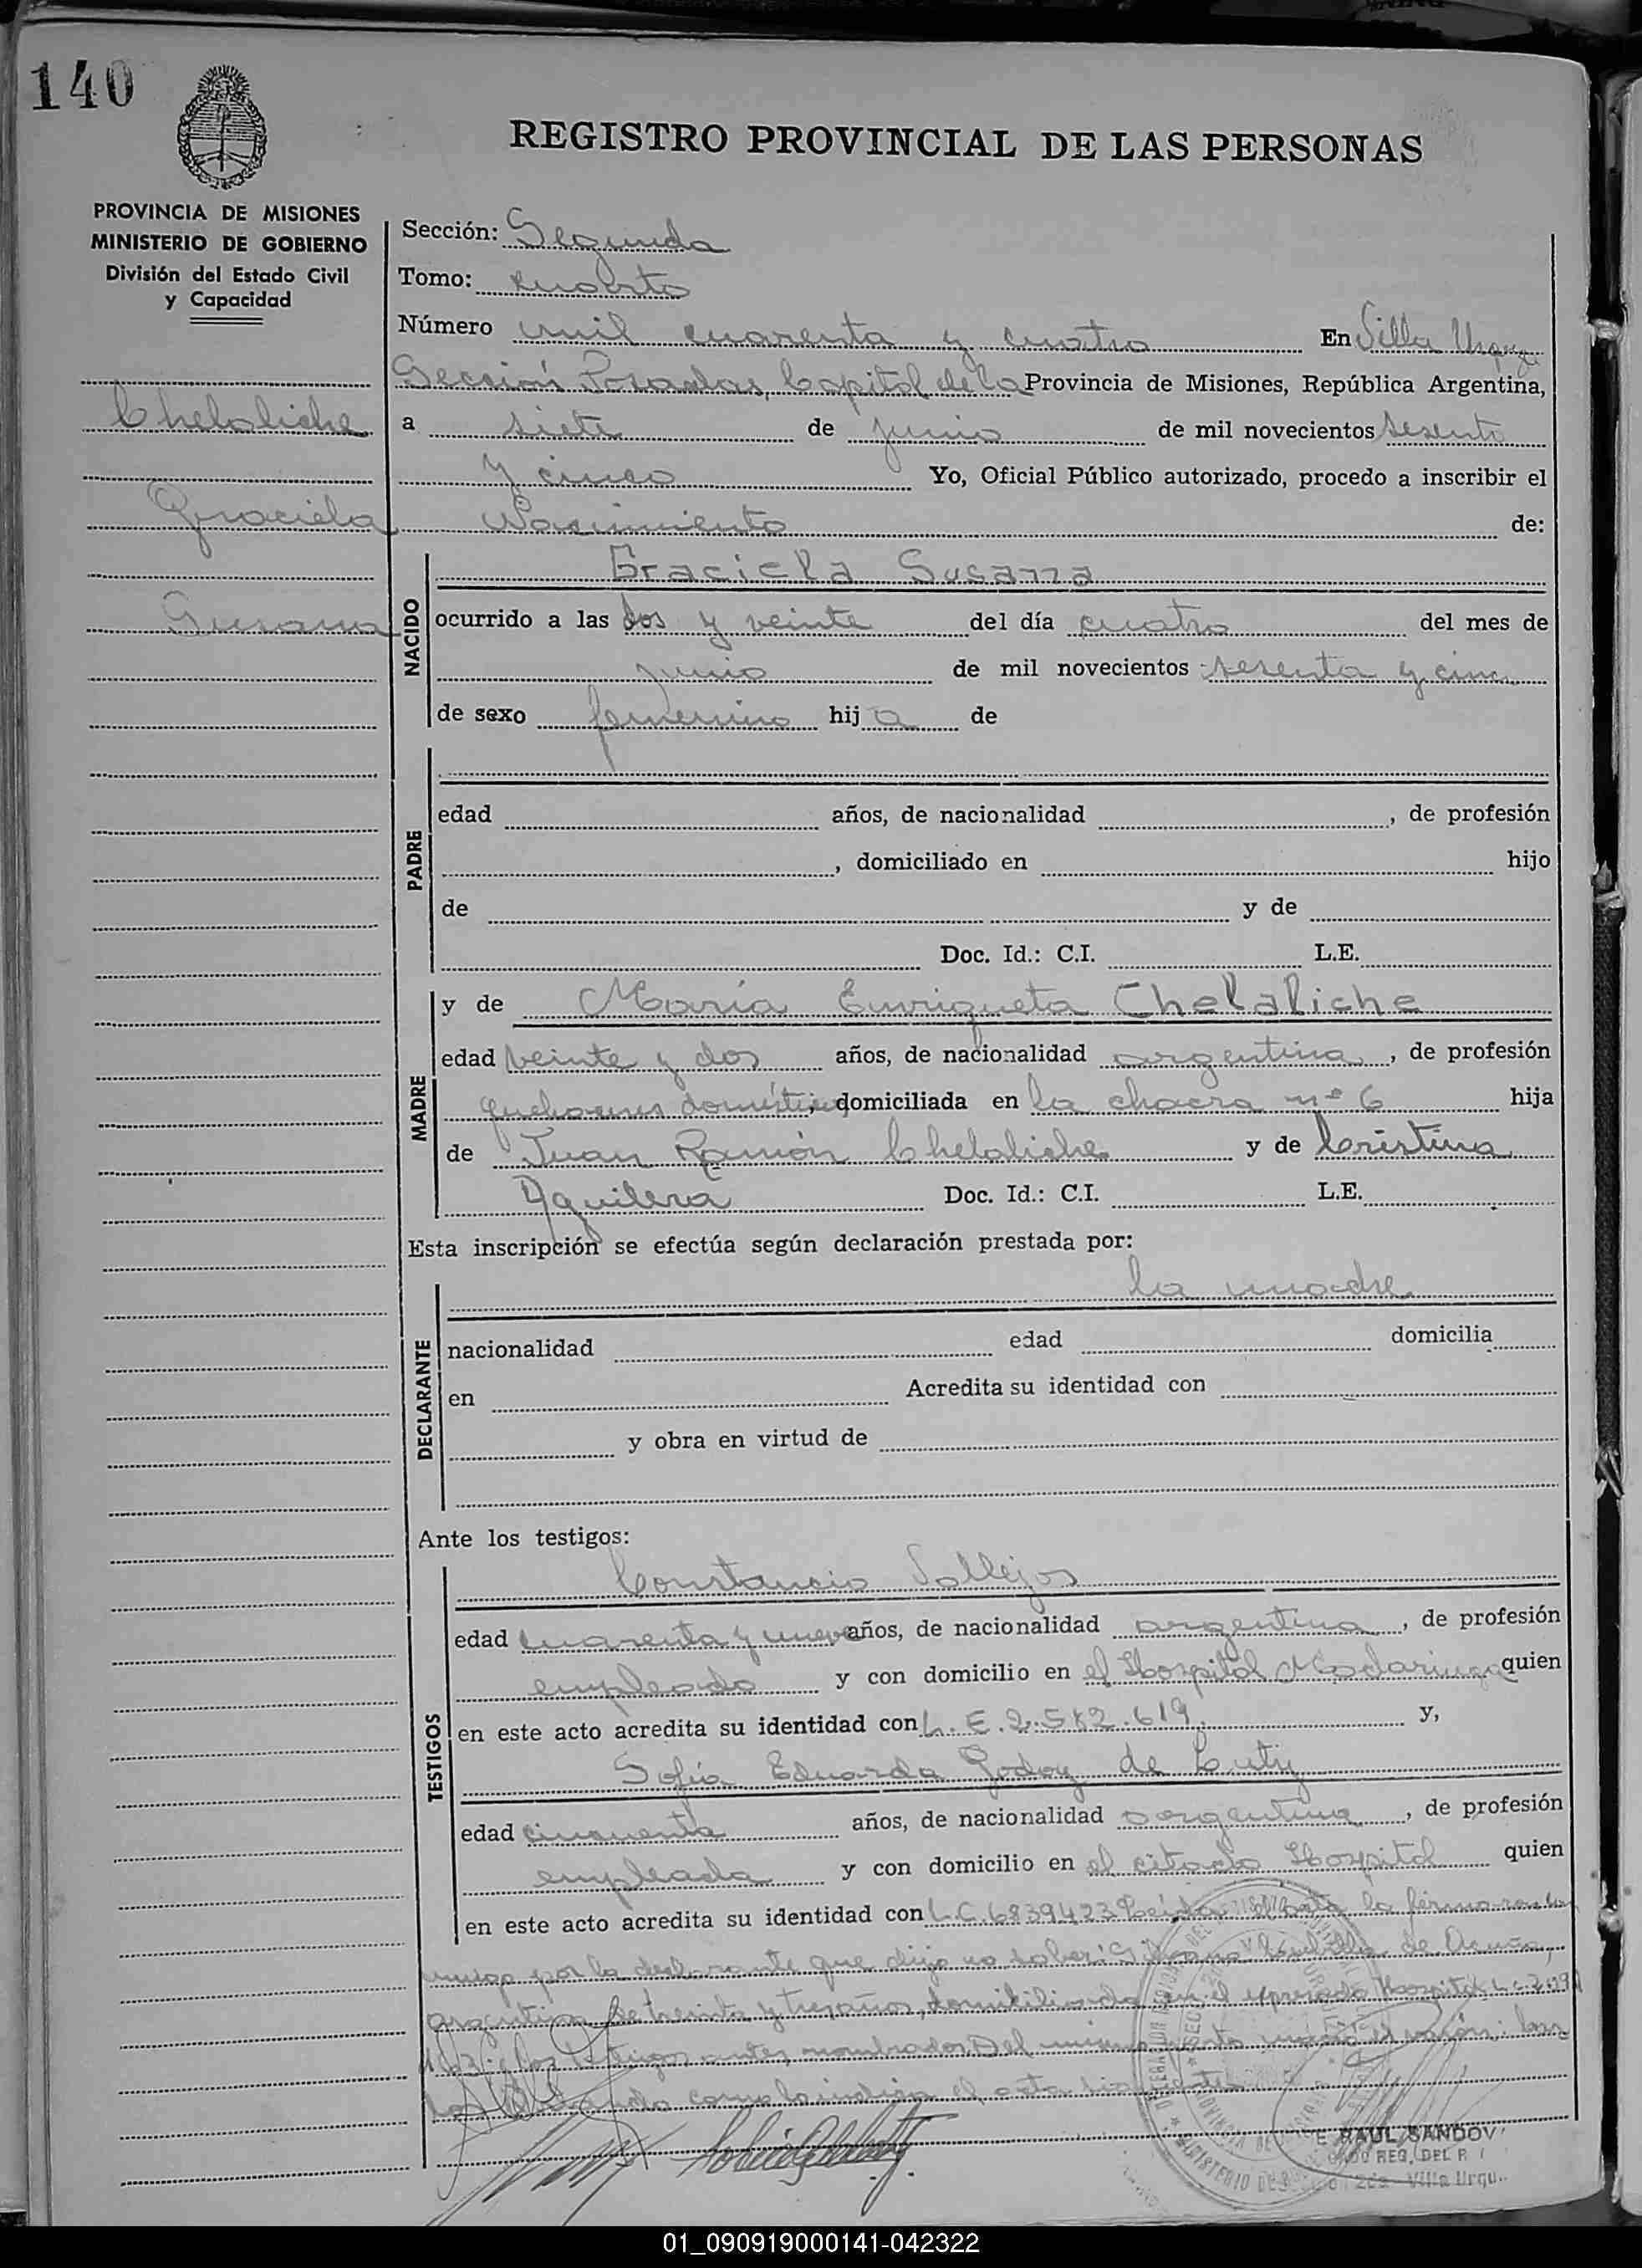 140
REGISTRO PROVINCIAL DE LAS PERSONAS
PROVINCIA DE MISIONES
MINISTERIO DE GOBIERNO
División del Estado Civil
y Capacidad
Chelaliche
Graciela
Susana
Sección: Segunda
Tomo: cuarto
Número mil cuarenta y cuatro En Villa Urquiza
Sección Posadas, Capital de la Provincia de Misiones, República Argentina,
a siete de junio de mil novecientos sesenta
y cinco Yo, Oficial Público autorizado, procedo a inscribir el
Nacimiento de:
NACIDO
Graciela Susana
ocurrido a las dos y veinte del día cuatro del mes de
junio de mil novecientos sesenta y cinco
de sexo femenino hija de
PADRE
edad años, de nacionalidad , de profesión
, domiciliado en hijo
de y de
Doc. Id.: C.I. L.E.
MADRE
y de María Enriqueta Chelaliche
edad veinte y dos años, de nacionalidad argentina, de profesión
quehaceres domésticos, domiciliada en la chacra nº 6 hija
de Juan Ramón Chelaliche y de Cristina
Aguilera Doc. Id.: C.I. L.E.
Esta inscripción se efectúa según declaración prestada por:
la madre
DECLARANTE
nacionalidad edad domicilia
en Acredita su identidad con
y obra en virtud de
Ante los testigos:
TESTIGOS
Constancio Vallejos
edad cuarenta y nueve años, de nacionalidad argentina, de profesión
empleado y con domicilio en el Hospital Madariaga quien
en este acto acredita su identidad con L.E. 2.582.619. y,
Sofía Eduarda Godoy de Cuty
edad cincuenta años, de nacionalidad argentina, de profesión
empleada y con domicilio en el citado Hospital quien
en este acto acredita su identidad con L.C. 6839423 Leída el acta la firma
por la declarante que dijo no saber: de Acuña,
argentina de treinta y tres años, domiciliada en el expresado Hospital L.C.
y los testigos antes nombrados Del mismo
como lo indica el acta
E. RAUL SANDOV
REG. DEL
2da Villa Urqu
01_090919000141-042322